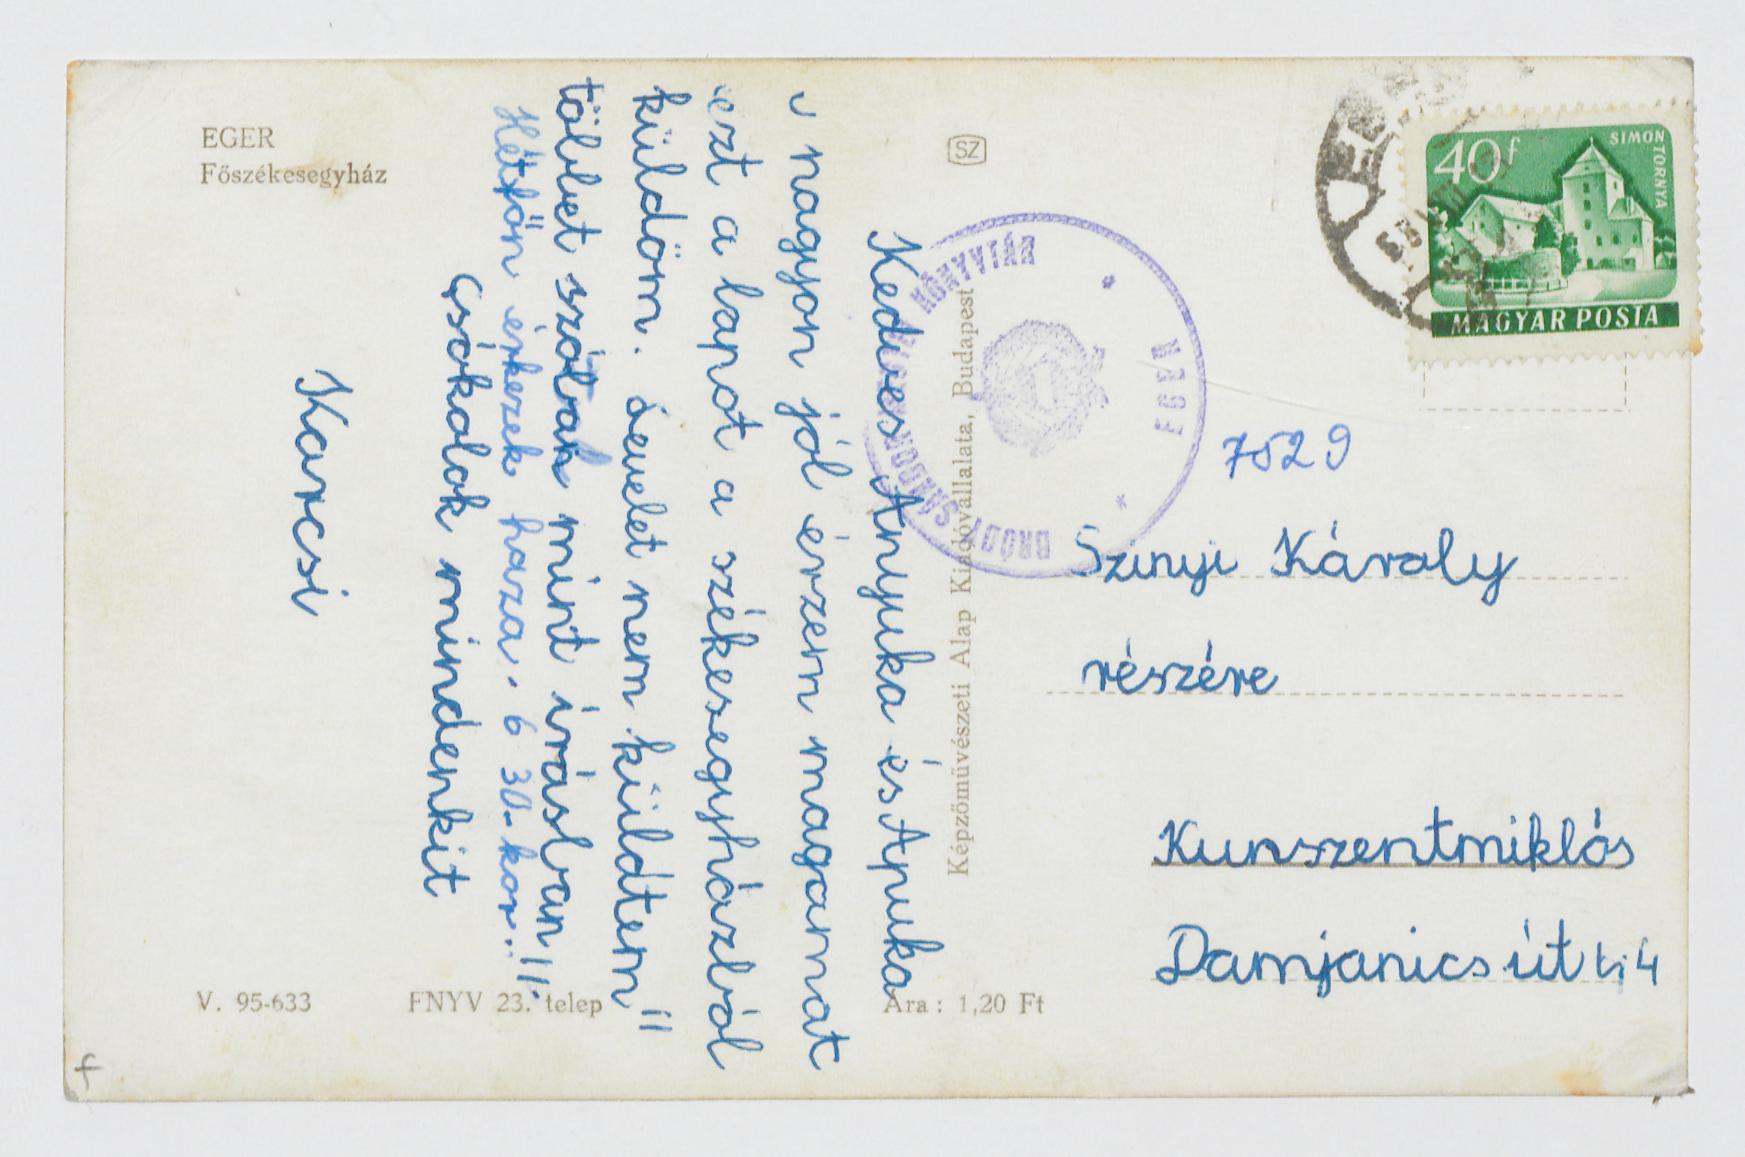 EGER
Főszékesegyház
Kedves Anyuka és Apuka
nagyon jól érzem magamat
ezt a lapot a székesegyházból
küldöm. Levelet nem küldtem!!
többet szólok mint írásban!!.
Hétfőn érkezek haza. 6 30-kor!!
Csókolok mindenkit
Karcsi
V. 95-633
FNYV 23. telep
Ára: 1,20 Ft
SZ
Képzőművészeti Alap Kiadóvállalata, Budapest
BRÓDY SÁNDOR KÖNYVTÁR
* EGER *
EGER
40f
SIMONTORNYA
MAGYAR POSTA
7529
Szinyi Károly
részére
Kunszentmiklós
Damjanics út 4
f